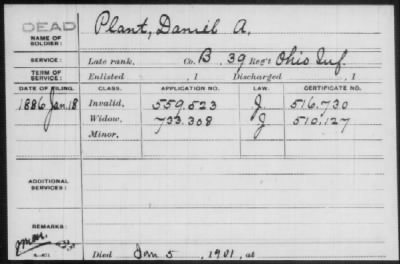 DEAD
NAME OF SOLDIER: Plant, Daniel A.
SERVICE: Late rank, Co. B, 39 Reg't Ohio Inf.
TERM OF SERVICE: Enlisted , 1 Discharged , 1
DATE OF FILING. CLASS. APPLICATION NO. LAW. CERTIFICATE NO.
1886 Jan. 18 Invalid, 559.523 J. 516.730
Widow, 733.308 J 510.127
Minor,
ADDITIONAL SERVICES:
REMARKS:
Died Jan 5 , 1901, at